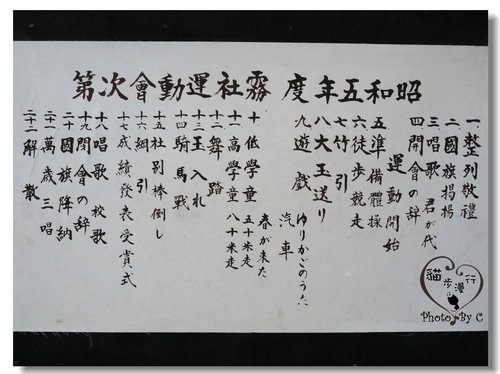 昭和五年度 霧社運動會次第
一 整列敬禮
二 國旗揭揚
三 唱歌 君が代
四 開會の辞
運動開始
五 準備體操
六 徒歩競走
七 竹引
八 大玉送り
九 遊戲
ゆりかごのうた
汽車
春が来た
十 低學童 五十米走
十一 高學童 八十米走
十二 舞踏
十三 玉入れ
十四 騎馬戰
十五 社別棒倒し
十六 綱引
十七 成績發表受賞式
十八 唱歌 校歌
十九 閉會の辞
二十 國旗降納
二十一 萬歲三唱
二十二 解散
貓步漫行
Photo By C